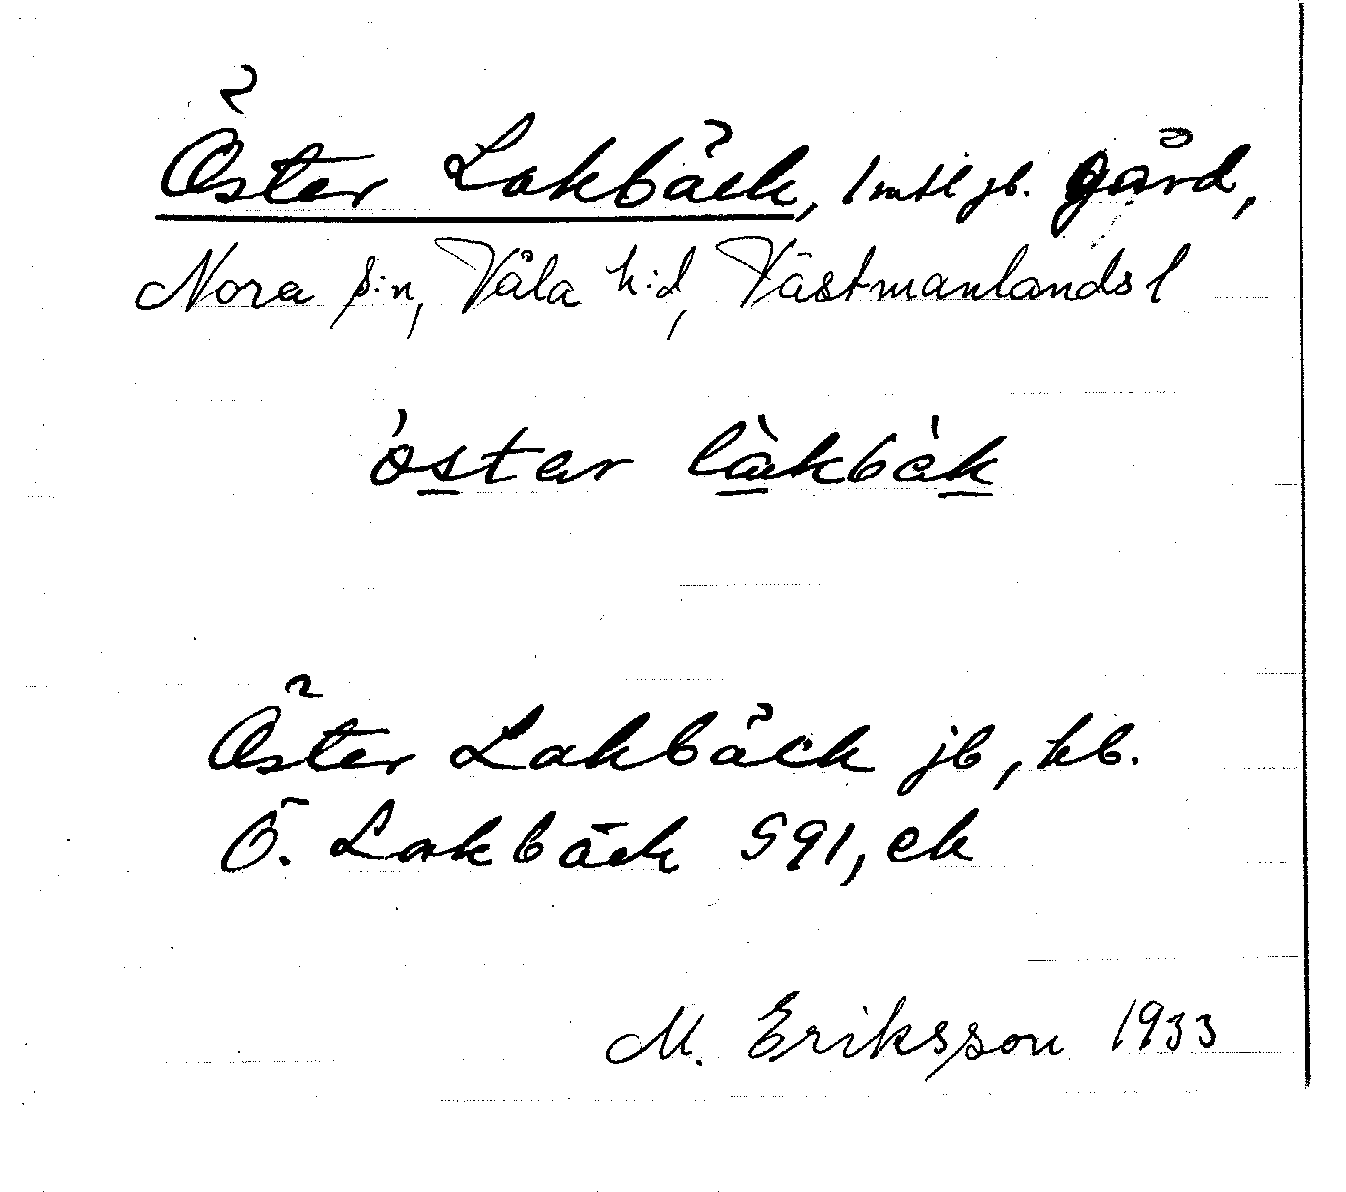 Öster Lakbäck, 1 mtl jb. gård,
Nora s:n, Våla h:d, Västmanlands l
östar làkbàk
Öster Lakbäck jb, kb.
Ö. Lakbäck S91, ek
M. Eriksson 1933